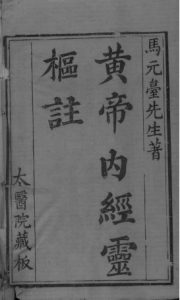 馬元臺先生著
黃帝內經靈
樞註
太醫院藏板